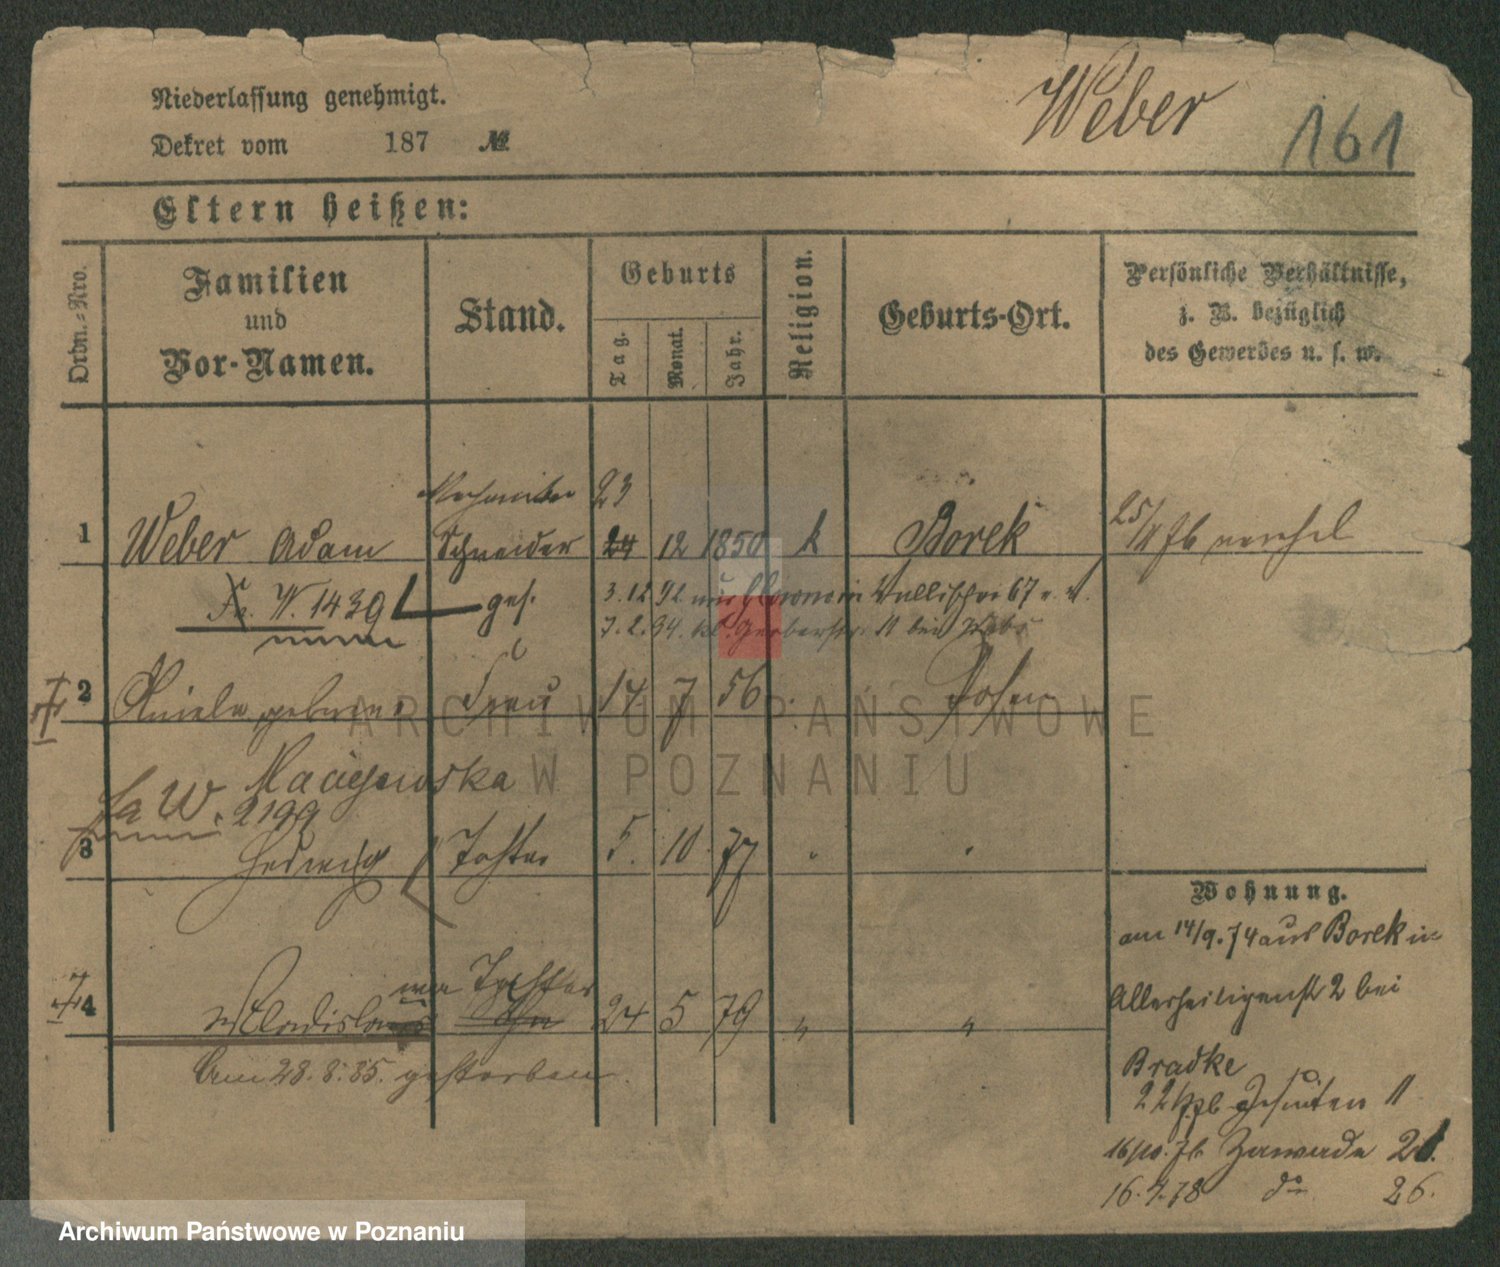 Niederlassung genehmigt.
Weber
161
Dekret vom 187 №
Eltern heißen:
Ordn.-Nro.
Familien
und
Vor-Namen.
Stand.
Geburts
Tag.
Monat.
Jahr.
Religion.
Geburts-Ort.
Persönliche Verhältnisse,
z. B. bezüglich
des Gewerbes u. s. w.
23
1 Weber Adam Schneider 24 12 1850 k Borek
W. 1439 ges. 3.12.92 Wallischei 67
7.2.94. kl. Gerberstr. 11 bei Weber
2 geborene Frau 14 7 56 Posen
Maciejewska
W. 2199
3 Hedwig Tochter 5. 10. 77
Wohnung.
am 14/9.74 aus Borek in
Tochter
4 Wladislawa 24 5 79 " "
Allerheiligenst 2 bei
Am 28.8.85. gestorben
Bradke
Jesuiten 11
16/10.76 Zawade 21.
16.4.78 do 26.
ARCHIWUM PAŃSTWOWE
W POZNANIU
Archiwum Państwowe w Poznaniu